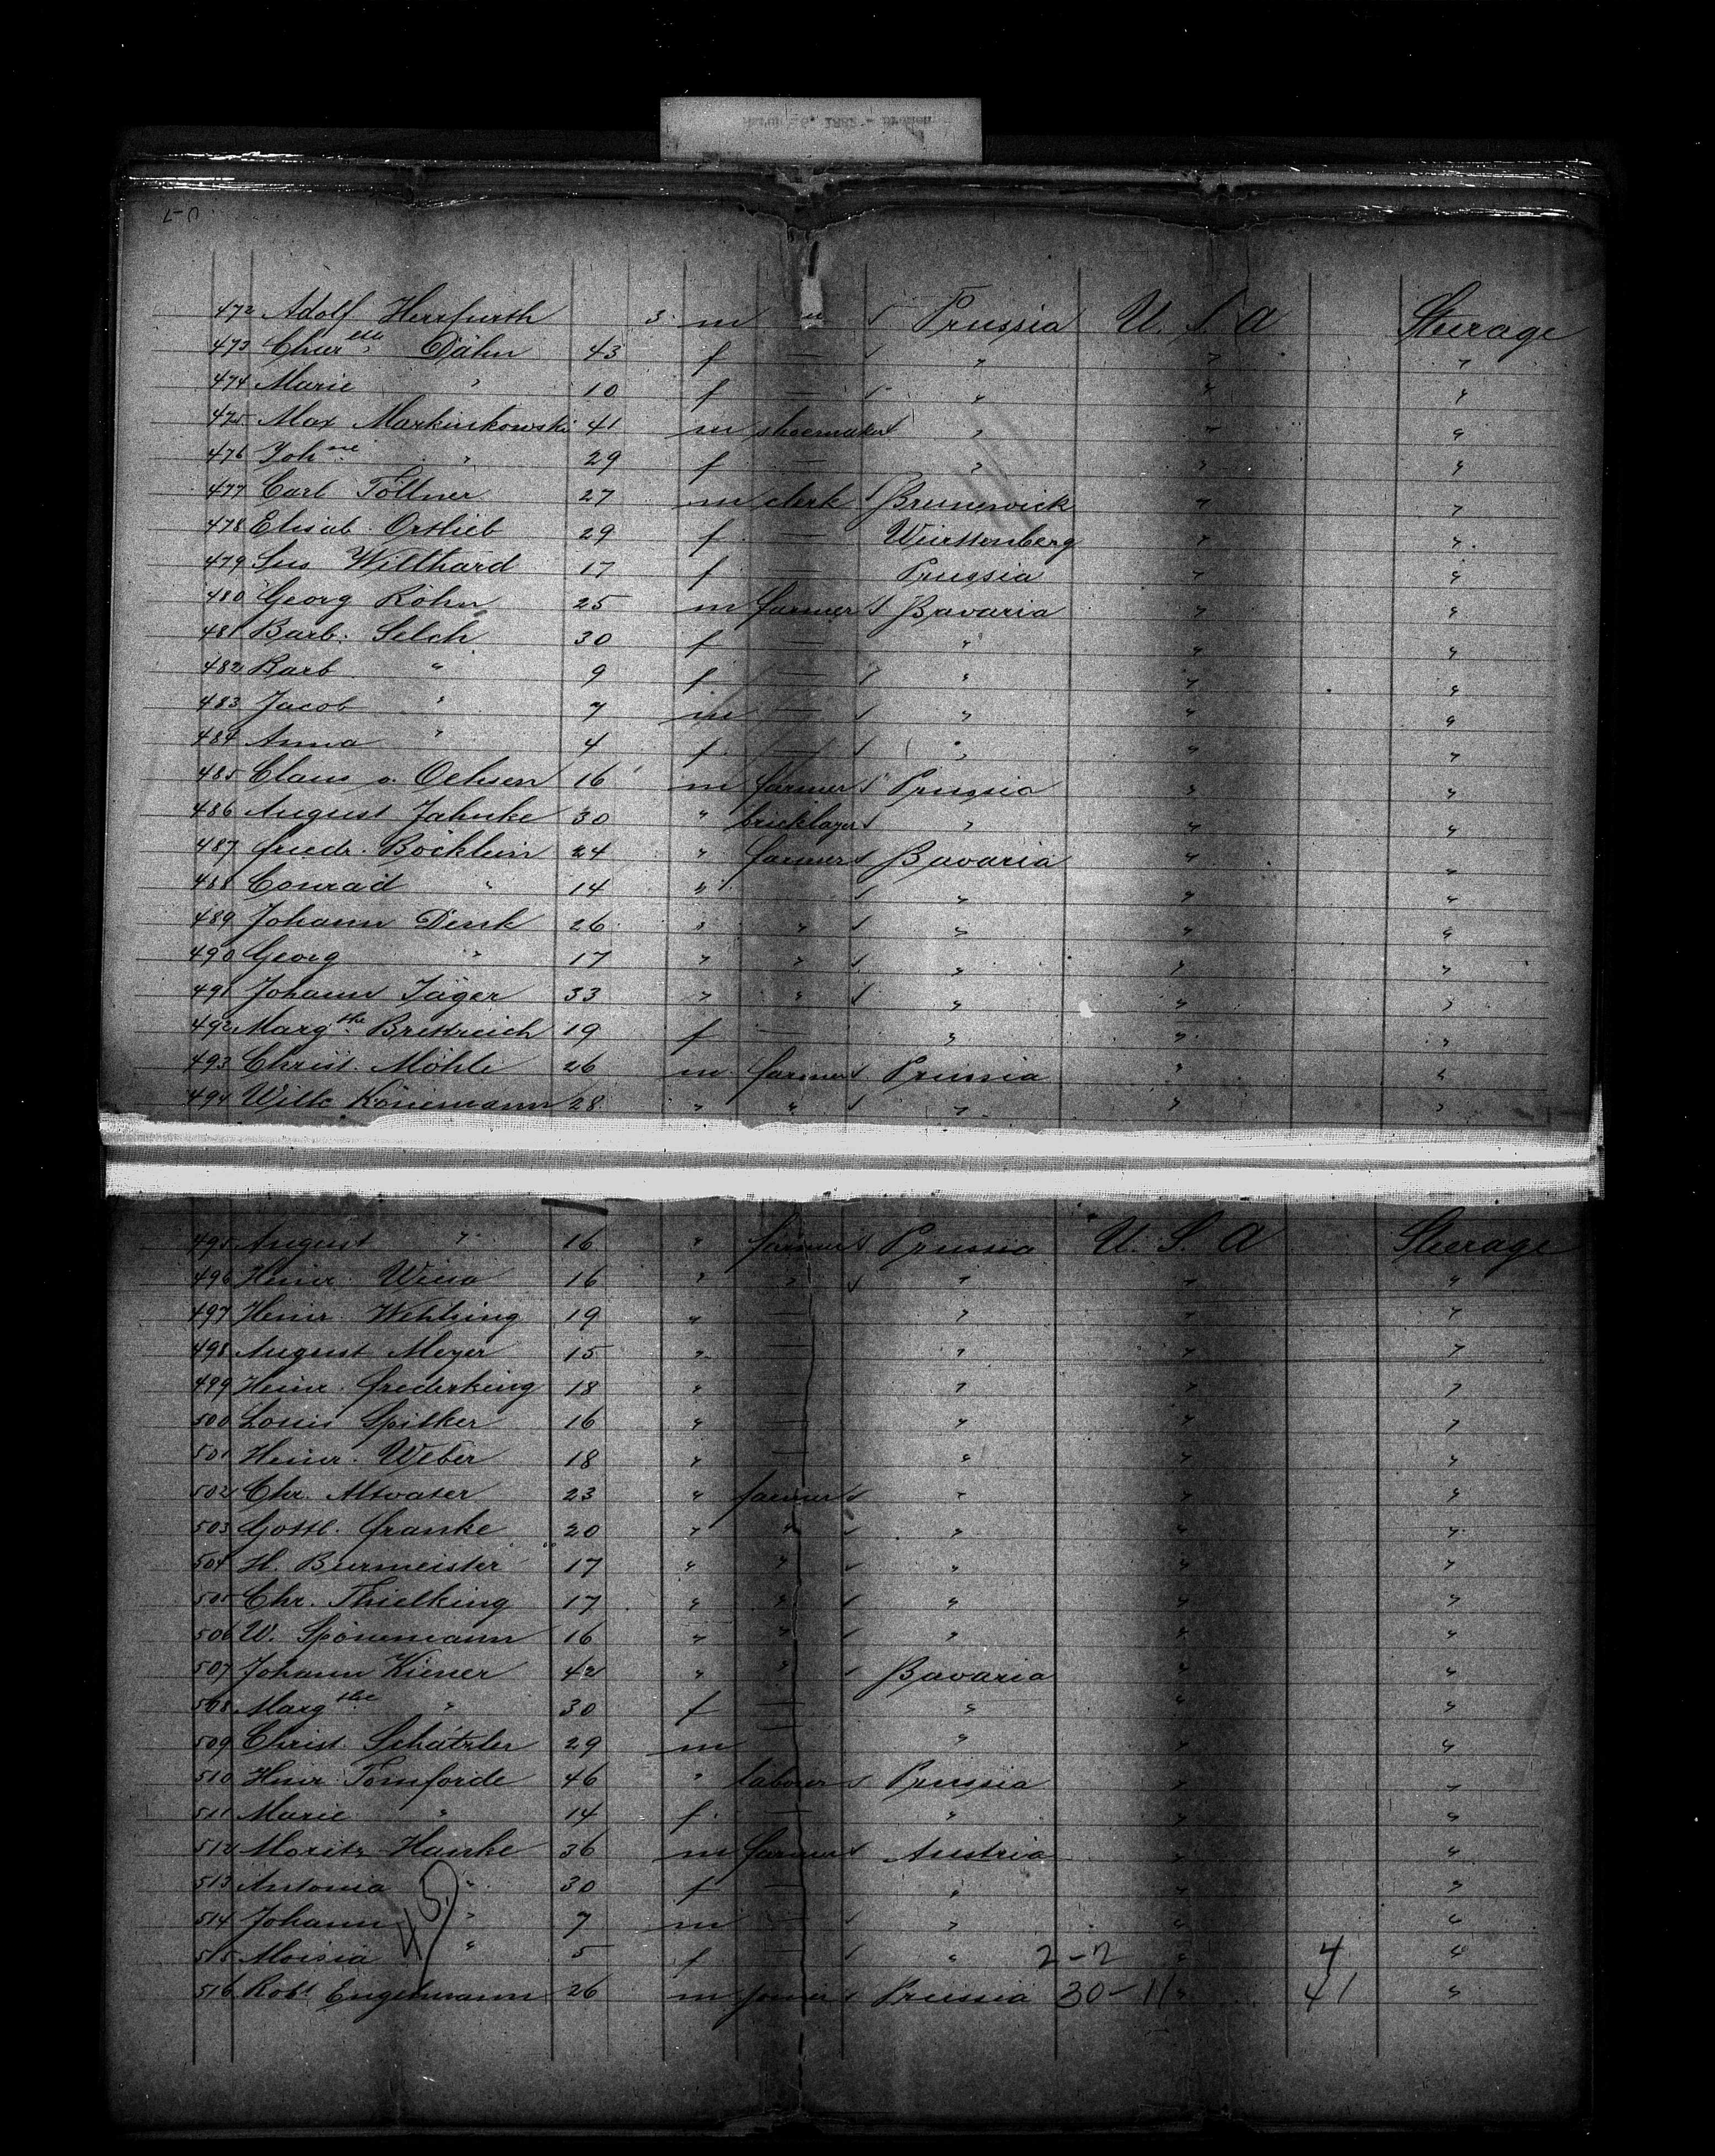 472 Adolf Herrfurth 3 m " Prussia U. S. A Steerage
473 Char tte Dähn 43 f — " " "
474 Marie " 10 f — " " "
475 Max Markinkowski 41 m shoemaker " " "
476 Joh ne " 29 f — " " "
477 Carl Töllner 27 m clerk Brunswick " "
478 Elisab. Ortlieb 29 f — Würtemberg " "
479 Sus Willhard 17 f — Prussia " "
480 Georg Röhn 25 m farmer Bavaria " "
481 Barb. Selch 30 f — " " "
482 Barb " 9 f — " " "
483 Jacob " 7 m — " " "
484 Anna " 4 f — " " "
485 Claus v. Oehsen 16 m farmer Prussia " "
486 August Jahnke 30 " bricklayer " " "
487 Friedr. Böcklein 24 " farmer Bavaria " "
488 Conrad " 14 " " " "
489 Johann Denk 26 " " " " "
490 Georg " 17 " " " " "
491 Johann Jäger 33 " " " " "
492 Marg the Brettreich 19 f — " " "
493 Christ. Möhle 26 m farmer Prussia " "
494 Wilh Könemann 28 " " " " "
495 August " 16 " farmer Prussia U. S. A Steerage
496 Heinr. 16 " " " " "
497 Heinr. 19 " — " " "
498 August Meyer 15 " — " " "
499 Heinr. Frederking 18 " — " " "
500 Louis Spilker 16 " — " " "
501 Heinr. Weber 18 " — " " "
502 Chr. Altvater 23 " farmer " " "
503 Gottl. Franke 20 " " " " "
504 H. Burmeister 17 " " " " "
505 Chr. Thielking 17 " " " " "
506 W. Spönemann 16 " " " " "
507 Johann Kiener 42 " " Bavaria " "
508 Marg the " 30 f — " " "
509 Christ. Schätzler 29 m " " "
510 Heinr Tomforde 46 " labourer Prussia " "
511 Marie " 14 f. — " " "
512 Moritz Hanke 36 m farmer Austria " "
513 Antonia " 30 f — " " "
514 Johann " 7 m — " " "
515 " 5 f — " 2-2 " 4 "
516 Rob t Engelmann 26 m Prussia 30-11 " 41 "
45